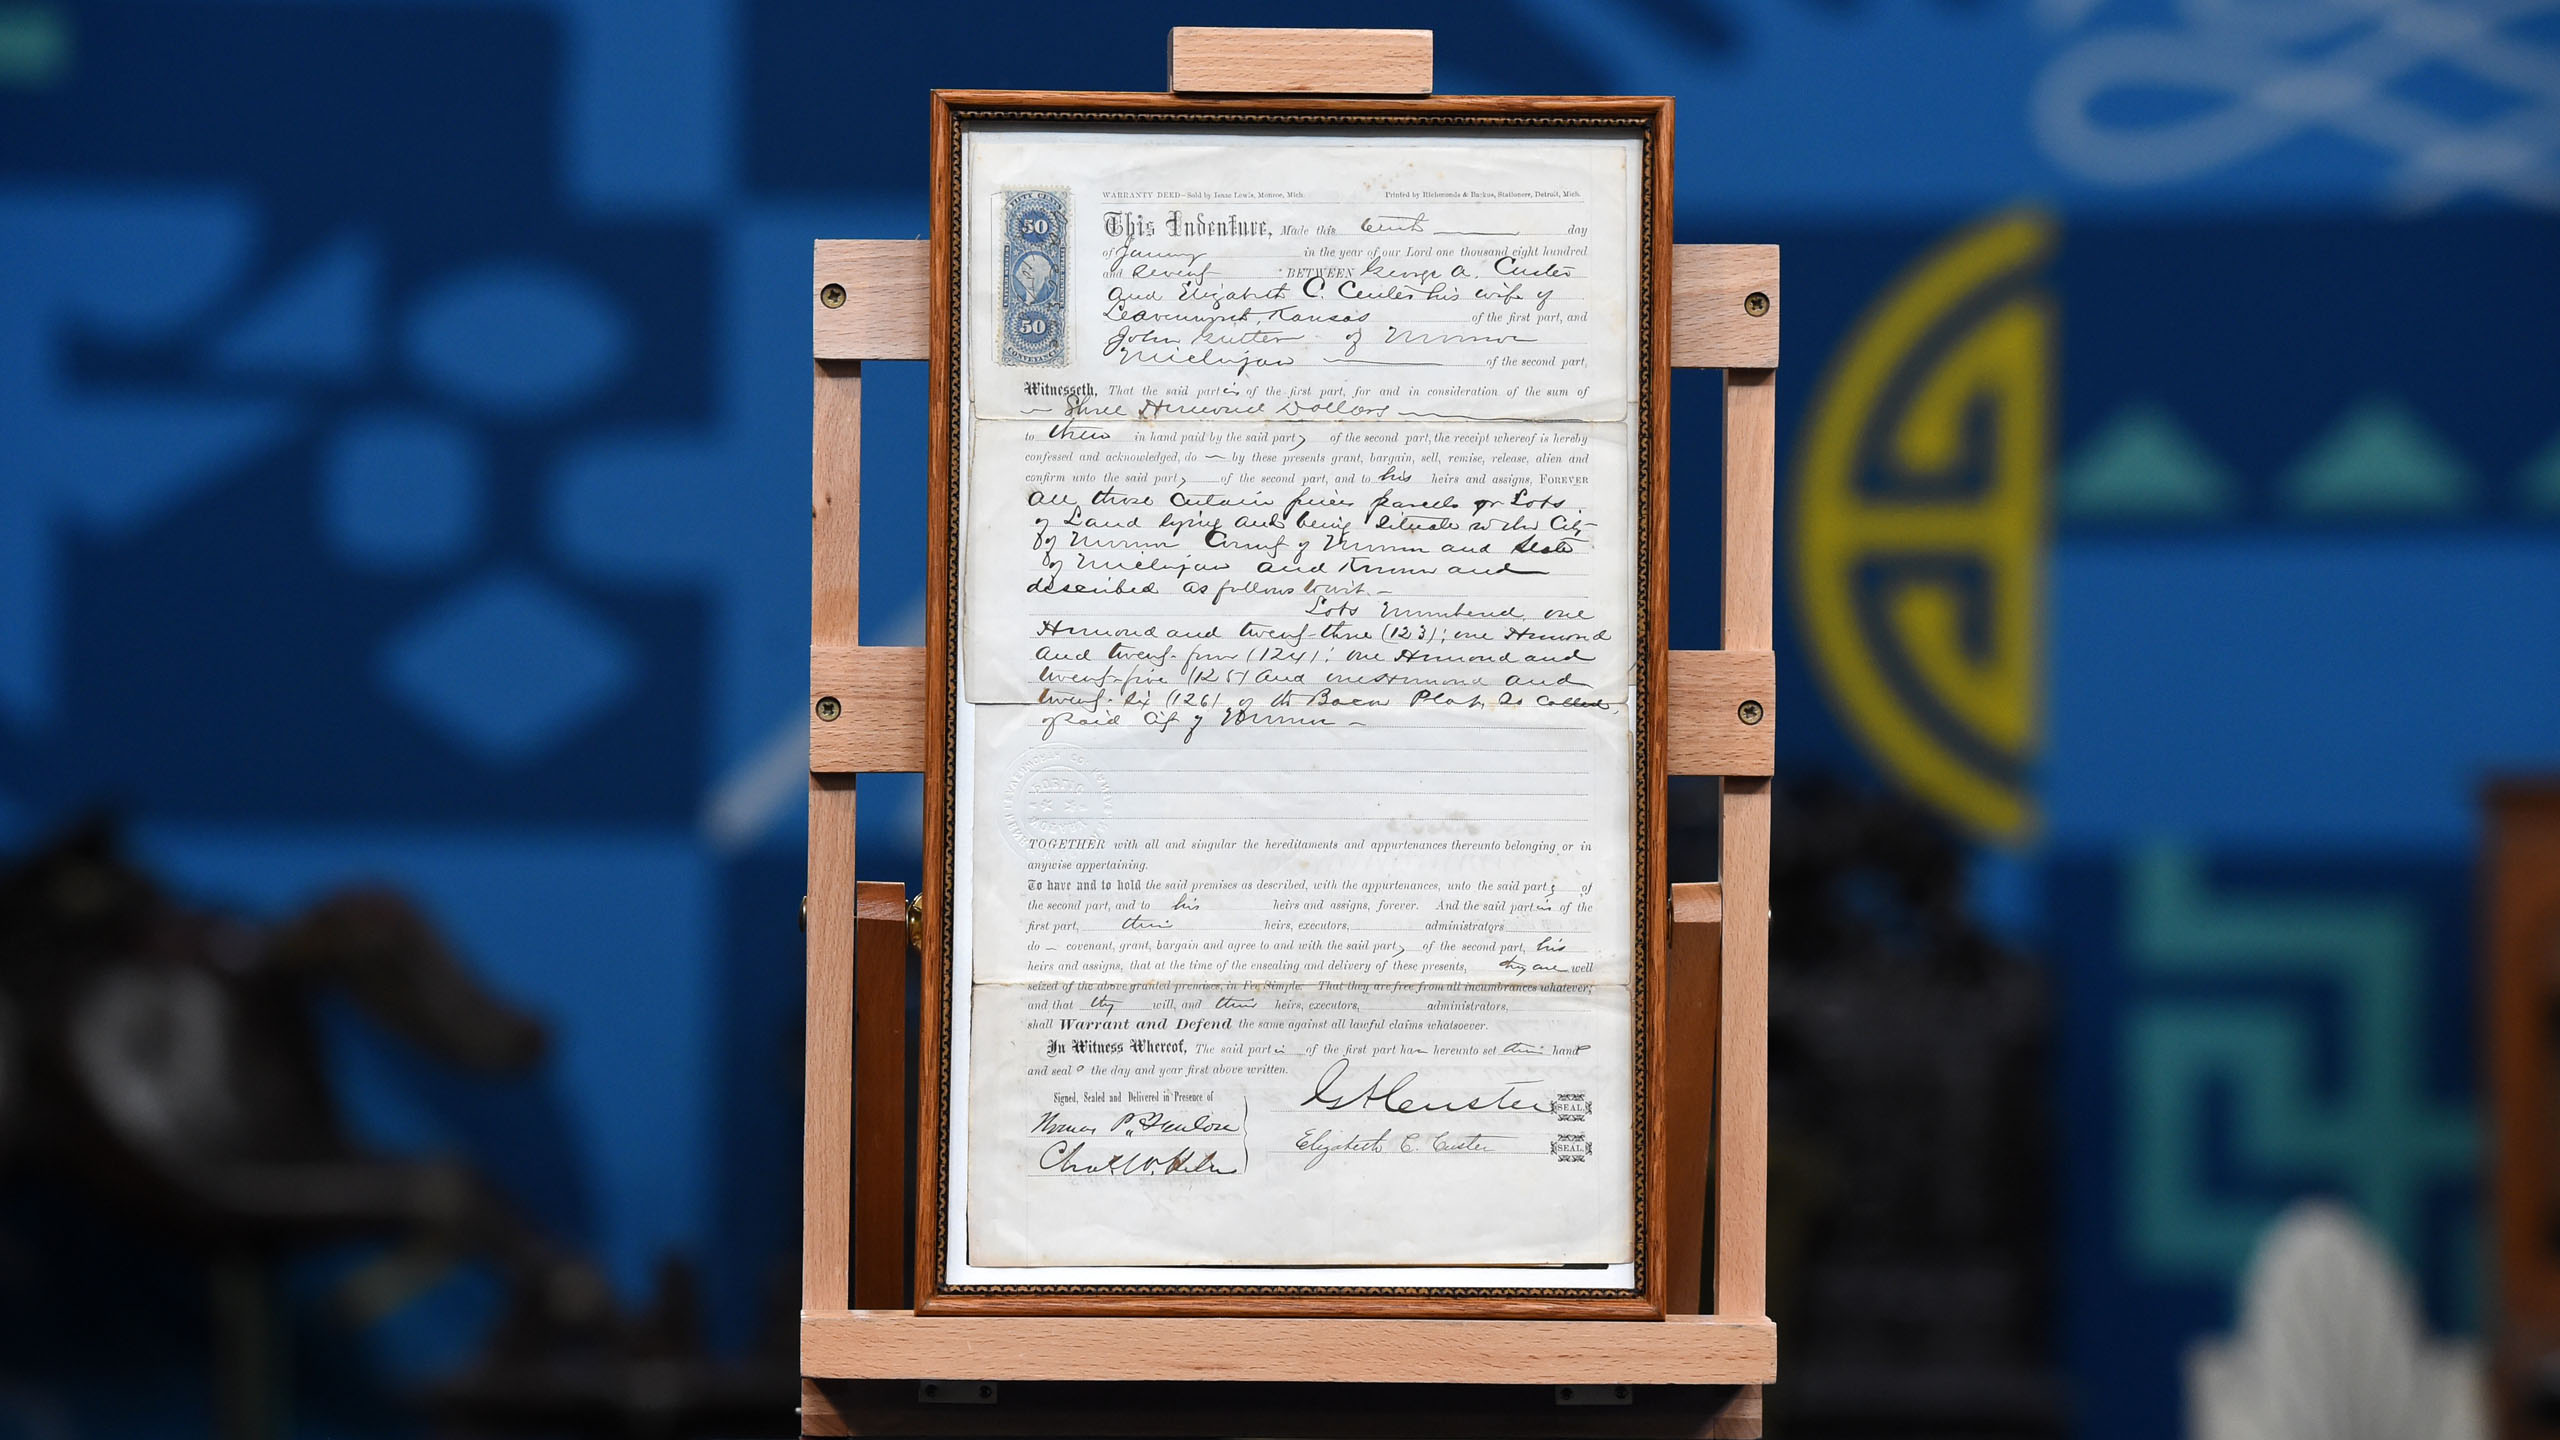 FIFTY CENTS
50
50
CONVEYANCE
WARRANTY DEED—Sold by Isaac Lewis, Monroe, Mich. Printed by Richmonds & Backus, Stationers, Detroit, Mich.
This Indenture, Made this tenth day
of January in the year of our Lord one thousand eight hundred
and Seventy BETWEEN George A. Custer
and Elizabeth C. Custer his wife of
Leavenworth, Kansas of the first part, and
John of Monroe
Michigan of the second part,
Witnesseth, That the said parties of the first part, for and in consideration of the sum of
Three Hundred Dollars
to them in hand paid by the said party of the second part, the receipt whereof is hereby
confessed and acknowledged, do by these presents grant, bargain, sell, remise, release, alien and
confirm unto the said party of the second part, and to his heirs and assigns, FOREVER
All those certain pieces parcels or Lots
of Land lying and being situate in the City
of Monroe County of Monroe and State
of Michigan and Known and
described as follows to wit. -
Lots Numbered one
Hundred and twenty-three (123); one Hundred
and twenty-four (124); one Hundred and
twenty-five (125) and one Hundred and
twenty-six (126) of the Bacon Plat, so called,
of said City of Monroe -
TOGETHER with all and singular the hereditaments and appurtenances thereunto belonging or in
anywise appertaining.
To have and to hold the said premises as described, with the appurtenances, unto the said party of
the second part, and to his heirs and assigns, forever. And the said parties of the
first part, their heirs, executors, administrators
do covenant, grant, bargain and agree to and with the said party of the second part, his
heirs and assigns, that at the time of the ensealing and delivery of these presents, they are well
seized of the above granted premises, in Fee Simple. That they are free from all incumbrances whatever;
and that they will, and their heirs, executors, administrators,
shall Warrant and Defend the same against all lawful claims whatsoever.
In Witness Whereof, The said parties of the first part have hereunto set their hands
and seals the day and year first above written.
Signed, Sealed and Delivered in Presence of
Thomas P. Fenlon
Chas W.
GACuster SEAL.
Elizabeth C. Custer SEAL.